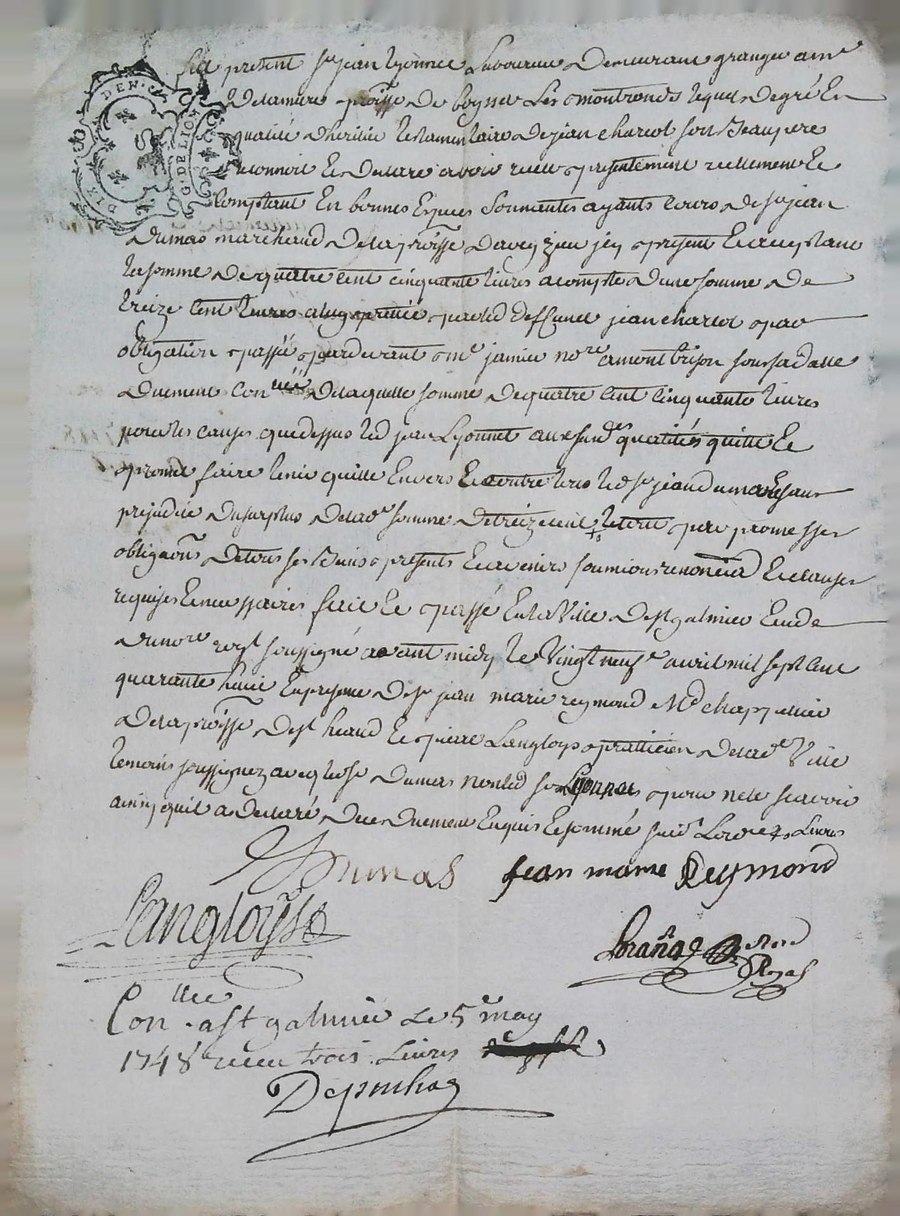 DIX DEN.
G. DE LION
fut present Sr jean Lyonnet Laboureur Demeurant
Delamure p̃oisse De Boysset Les montronds lequel Degré En
qualité D'heritier testamentaire De jean chareot son Beaupere
reconnoit Et Declare avoir receu presentement reellement Et
Comptant En bonnes Especes Sonnantes ayants Cours De Sr jean
Dumas marchand Dela p̃oisse D'aveyzieu jcy present Et acceptant
la somme De quatre cent cinquante livres acompte D'une somme De
treize Cent livres par led deffunct jean chareot par
obligation passée pardevant me janier nore a montbrison sous sa datte
Duement Conllée De laquelle somme De quatre Cent Cinquante livres
pour les causes que dessus led jean Lyonnet auxsusd qualités quitte Et
promet faire tenir quitte Envers Et contre tous led Sr jean Dumas Et sans
prejudice Du surplus De lad somme De treize cent livres par promesses
obligaõns De tous ses Biens presents Et avenirs soumions renonciaõ Et clauses
requises Et necessaires fait Et passé En la Ville De St galmier Etude
Du nore royl soussigné avant midy le Vingt neufe avril mil sept cent
quarante huit En presence De Sr jean marie reymond Md chappellier
Dela p̃oisse De St heand Et pierre Langloys pratticien De lad Ville
temoins soussignez avec led Sr Dumas non led Sr Lyonnet pour ne le scavoir
ainsy qu'il a Declaré De ce Duement Enquis Et sommé
Dumas Jean marie Reymond
Langloys
Nore
Royal
Conllée a St galmier Le 5e may
1748 receu trois Livres